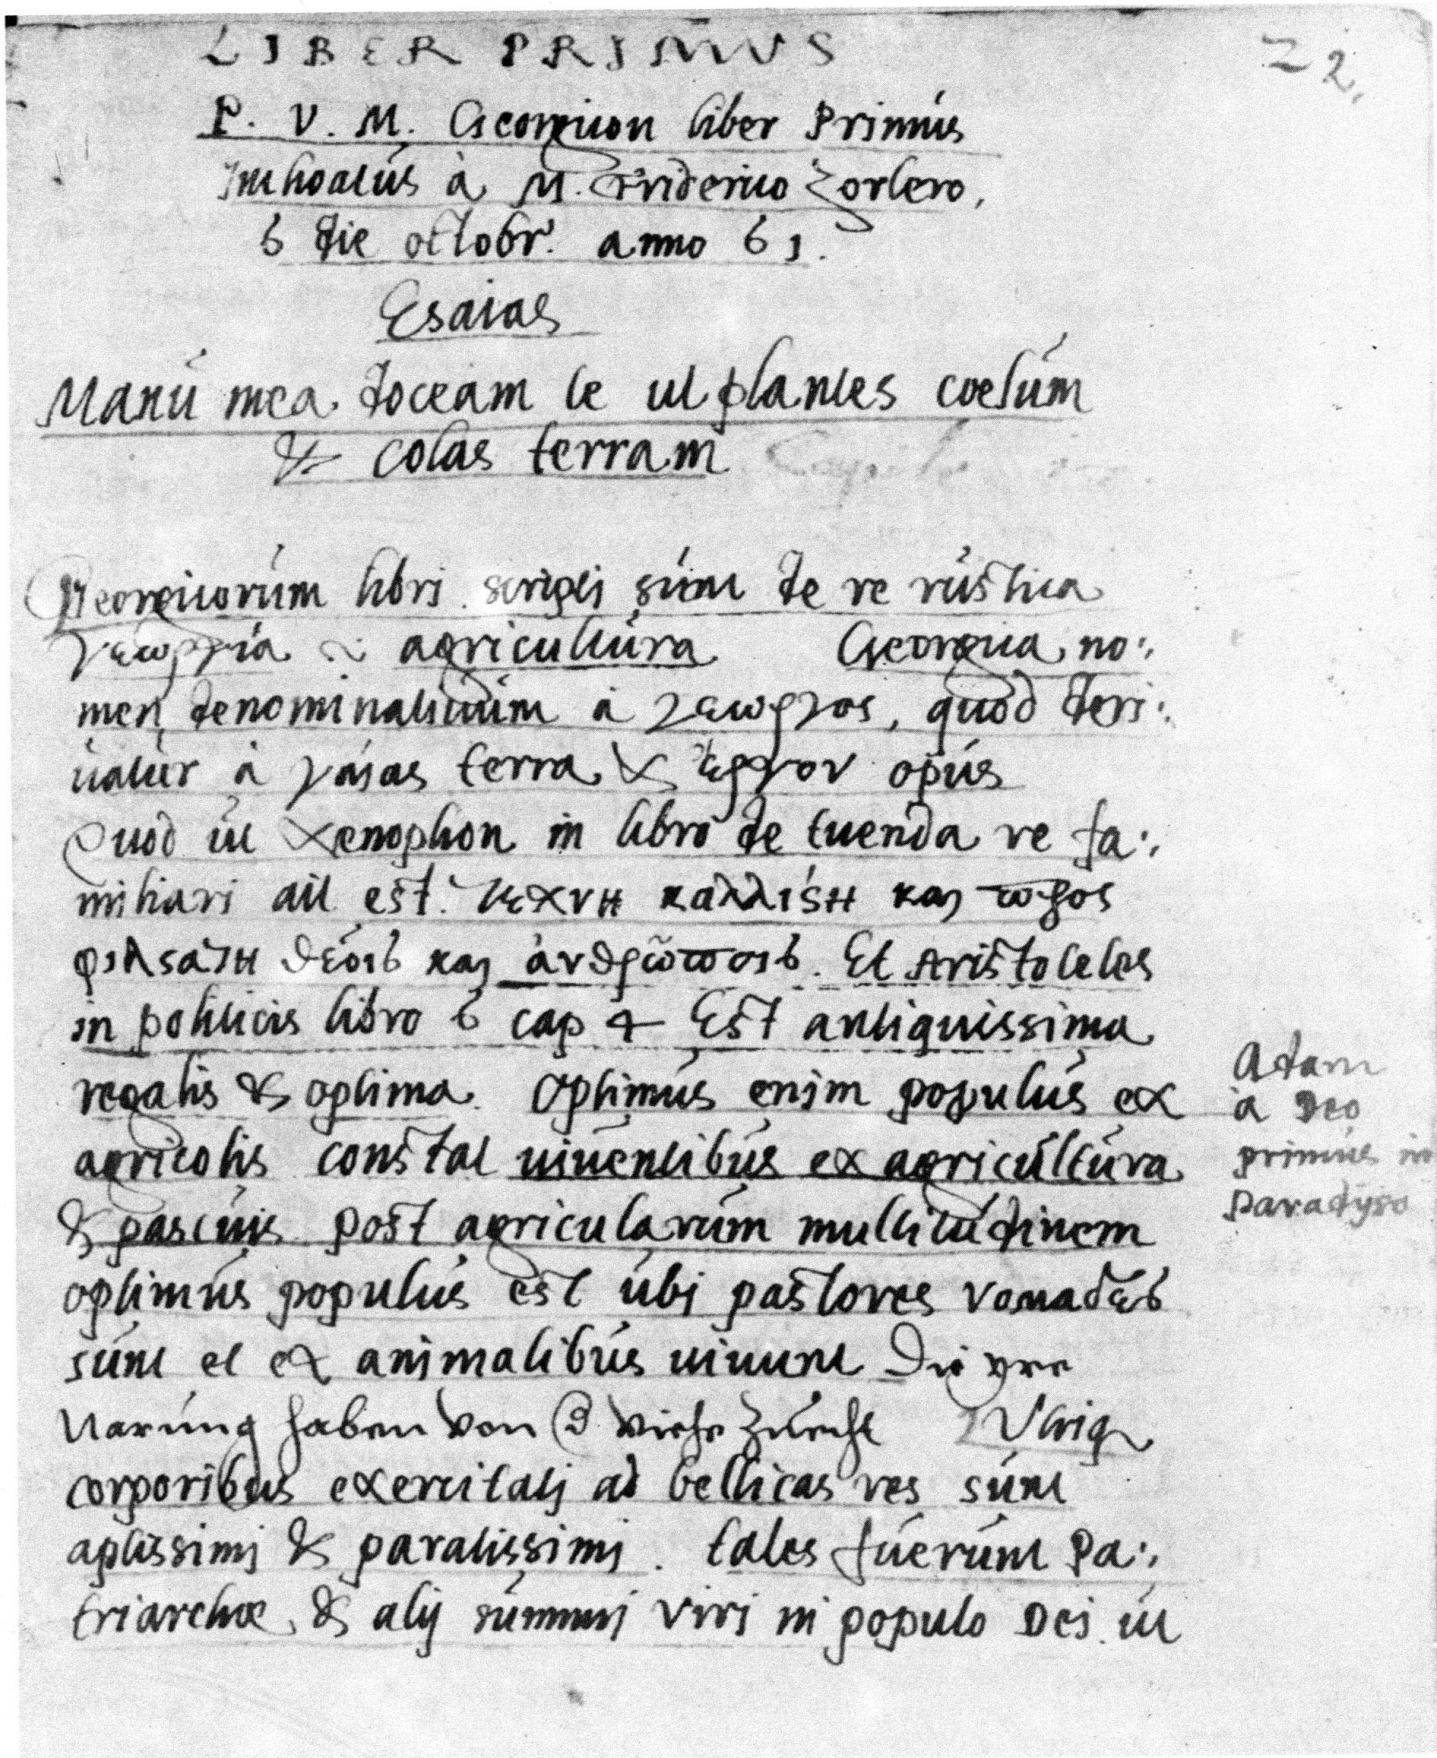 LIBER PRIMUS
2.
P. V. M. Georgicon liber Primús
Inchoatús à M. Friderico Zorlero,
6 die octobr. anno 61.
Esaias
Manú mea doceam te ut plantes coelúm
& colas terram
Georgicorúm libri scripti súnt de re rústica
γεωργία agricultúra Georgica no:,
men denominatiuúm à γεωργος, quod deri:,
úatúr à γαίας terra & ἔργον opús
Quod út Xenophon in libro de tuenda re fa:,
miliari ait est. τεχνη καλλίςη και
θεοις και ἀνθρῶποις. Et Aristoteles
in politicis libro 6 cap 4 Est antiquissima
regalis & optima. Optimús enim populús ex
agricolis constat uiuentibús ex agricúltúra
& pascúis post agricularúm multitúdinem
optimús populús est úbi pastores νομαδες
súnt et ex animalibús uiuunt Die yre
Narúng haben von d viehe zúcht
corporibus exercitatj ad bellicas res súnt
aptissimj & paratissimj. tales fúerúnt Pa:,
triarchae, & alij súmmj viri in populo Dei. út
Adam
a Deo
primús in
paradyso